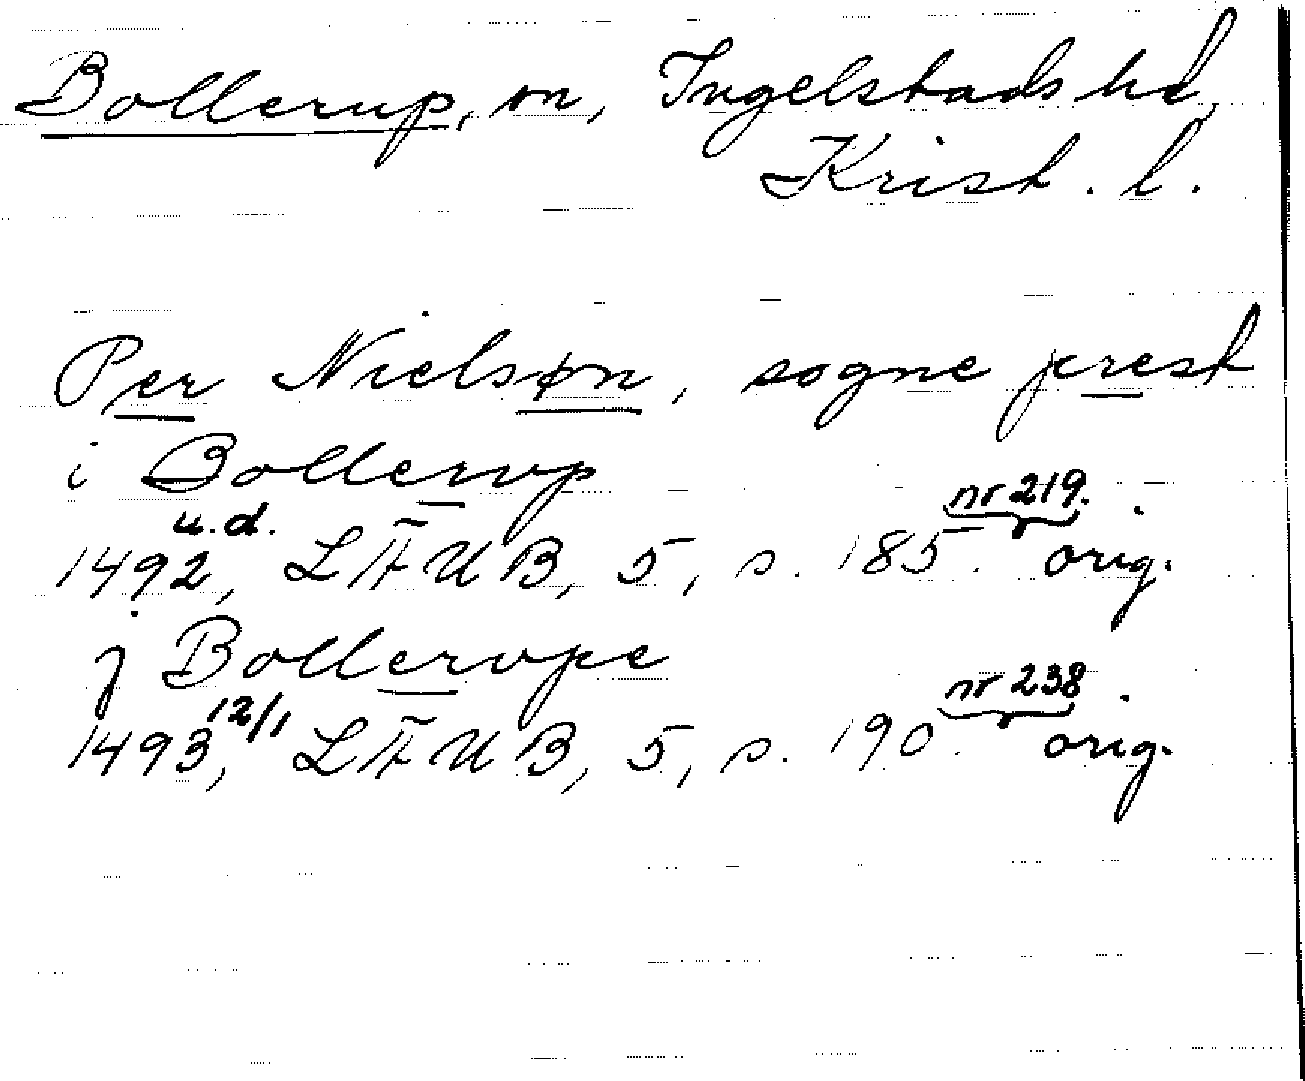 Bollerup, sn, Ingelstads hd,
Krist. l.
Per Nielsøn, sogne prest
i Bollerup
1492 u.d., LÄUB, 5, s. 185. nr 219. orig.
j Bollerupe
1493 12/1, LÄUB, 5, s. 190. nr 238 orig.